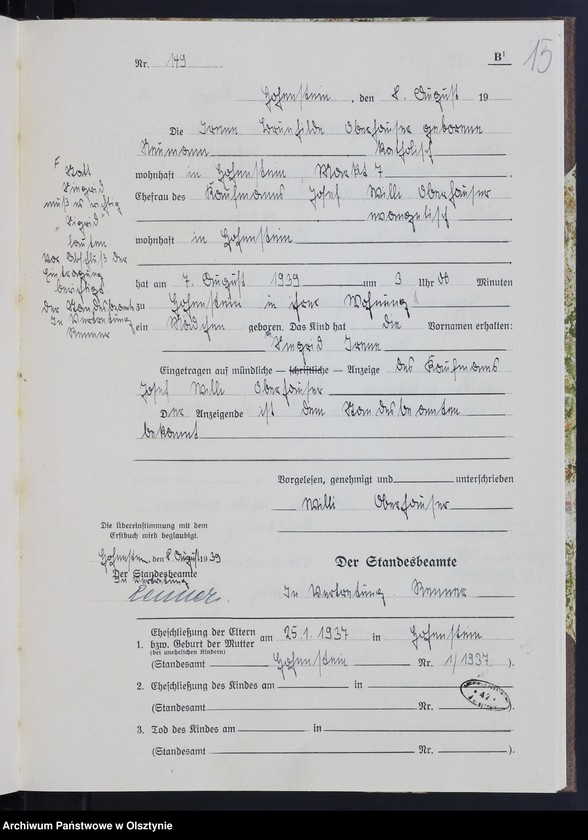 15
B¹
Nr. 149
Hohenstein, den 8. August 19
Die Irene Brunhilde Oberhauser geborene
Neumann katholisch
wohnhaft in Hohenstein, Markt 7
Ehefrau des Kaufmanns Josef Willi Oberhauser
evangelisch
wohnhaft in Hohenstein
hat am 7. August 1939 um 3 Uhr 00 Minuten
zu Hohenstein in ihrer Wohnung
ein Mädchen geboren. Das Kind hat die Vornamen erhalten:
Irene
Eingetragen auf mündliche — schriftliche — Anzeige des Kaufmanns
Josef Willi Oberhauser
Der Anzeigende ist dem Standesbeamten
bekannt
Vorgelesen, genehmigt und unterschrieben
Willi Oberhauser
Der Standesbeamte
In Vertretung Renner
F Statt
muß es richtig
"Sigrid"
lauten
Vor Abschluß der
Eintragung
berichtigt
Der Standesbeamte
In Vertretung
Renner
Die Übereinstimmung mit dem
Erstbuch wird beglaubigt.
Hohenstein, den 8. August 1939
Der Standesbeamte
In Vertretung
Renner.
1. Eheschließung der Eltern
bzw. Geburt der Mutter am 25.1.1937 in Hohenstein
(bei unehelichen Kindern)
(Standesamt Hohenstein Nr. 1/1937 ).
2. Eheschließung des Kindes am in
(Standesamt Nr. ).
42
3. Tod des Kindes am in
(Standesamt Nr. ).
Archiwum Państwowe w Olsztynie